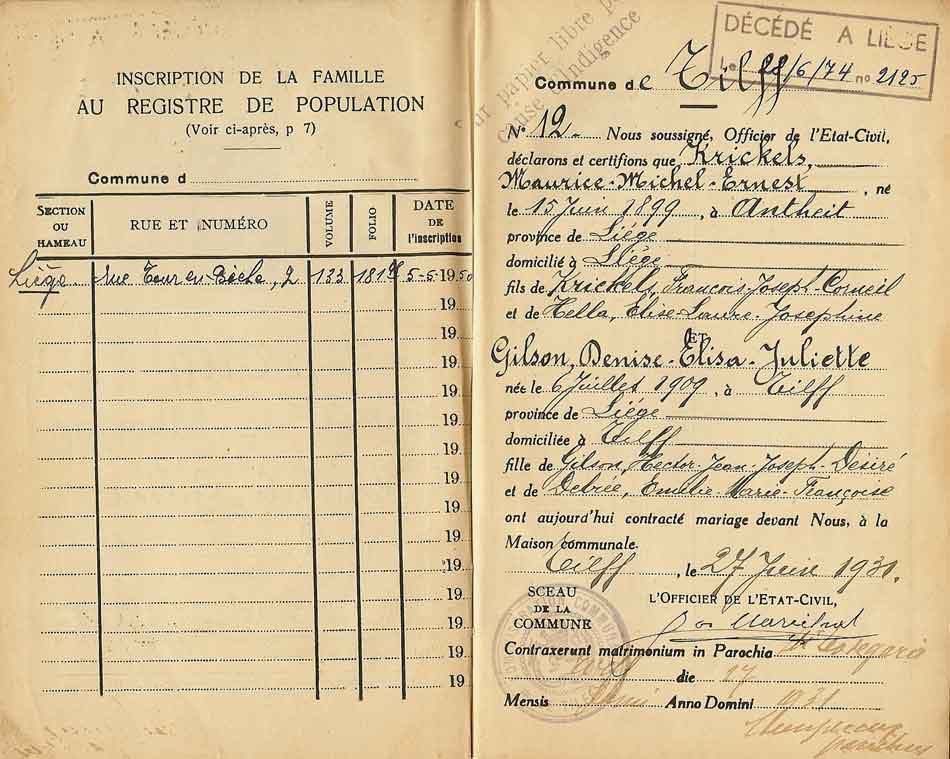 INSCRIPTION DE LA FAMILLE
AU REGISTRE DE POPULATION
(Voir ci-après, p 7)
Commune d
SECTION OU HAMEAU
RUE ET NUMÉRO
VOLUME
FOLIO
DATE DE l'inscription
Liège rue Tour en Bèche, 2 133 181 5-5-1950
19
19
19
19
19
19
19
19
19
19
19
19
19
19
sur papier libre pour
cause indigence
DÉCÉDÉ A LIÈGE
Le 22/6/74 no 2125
Commune de Tilff
N° 12 Nous soussigné, Officier de l'Etat-Civil,
déclarons et certifions que Krickels,
Maurice-Michel-Ernest, né
le 15 Juin 1899, à Antheit
province de Liége
domicilié à Liége
fils de Krickels, François-Joseph-Corneil
et de Hella, Elise-Laure-Josephine
ET
Gilson, Denise-Elisa-Juliette
née le 6 Juillet 1909, à Tilff
province de Liége
domiciliée à Tilff
fille de Gilson, Hector-Jean-Joseph-Désiré
et de Debrée, Emélie-Marie-Françoise
ont aujourd'hui contracté mariage devant Nous, à la
Maison communale.
Tilff, le 27 Juin 1931.
SCEAU
DE LA
COMMUNE
L'OFFICIER DE L'ETAT-CIVIL,
Contraxerunt matrimonium in Parochia
die 27
Mensis Junii Anno Domini 1931